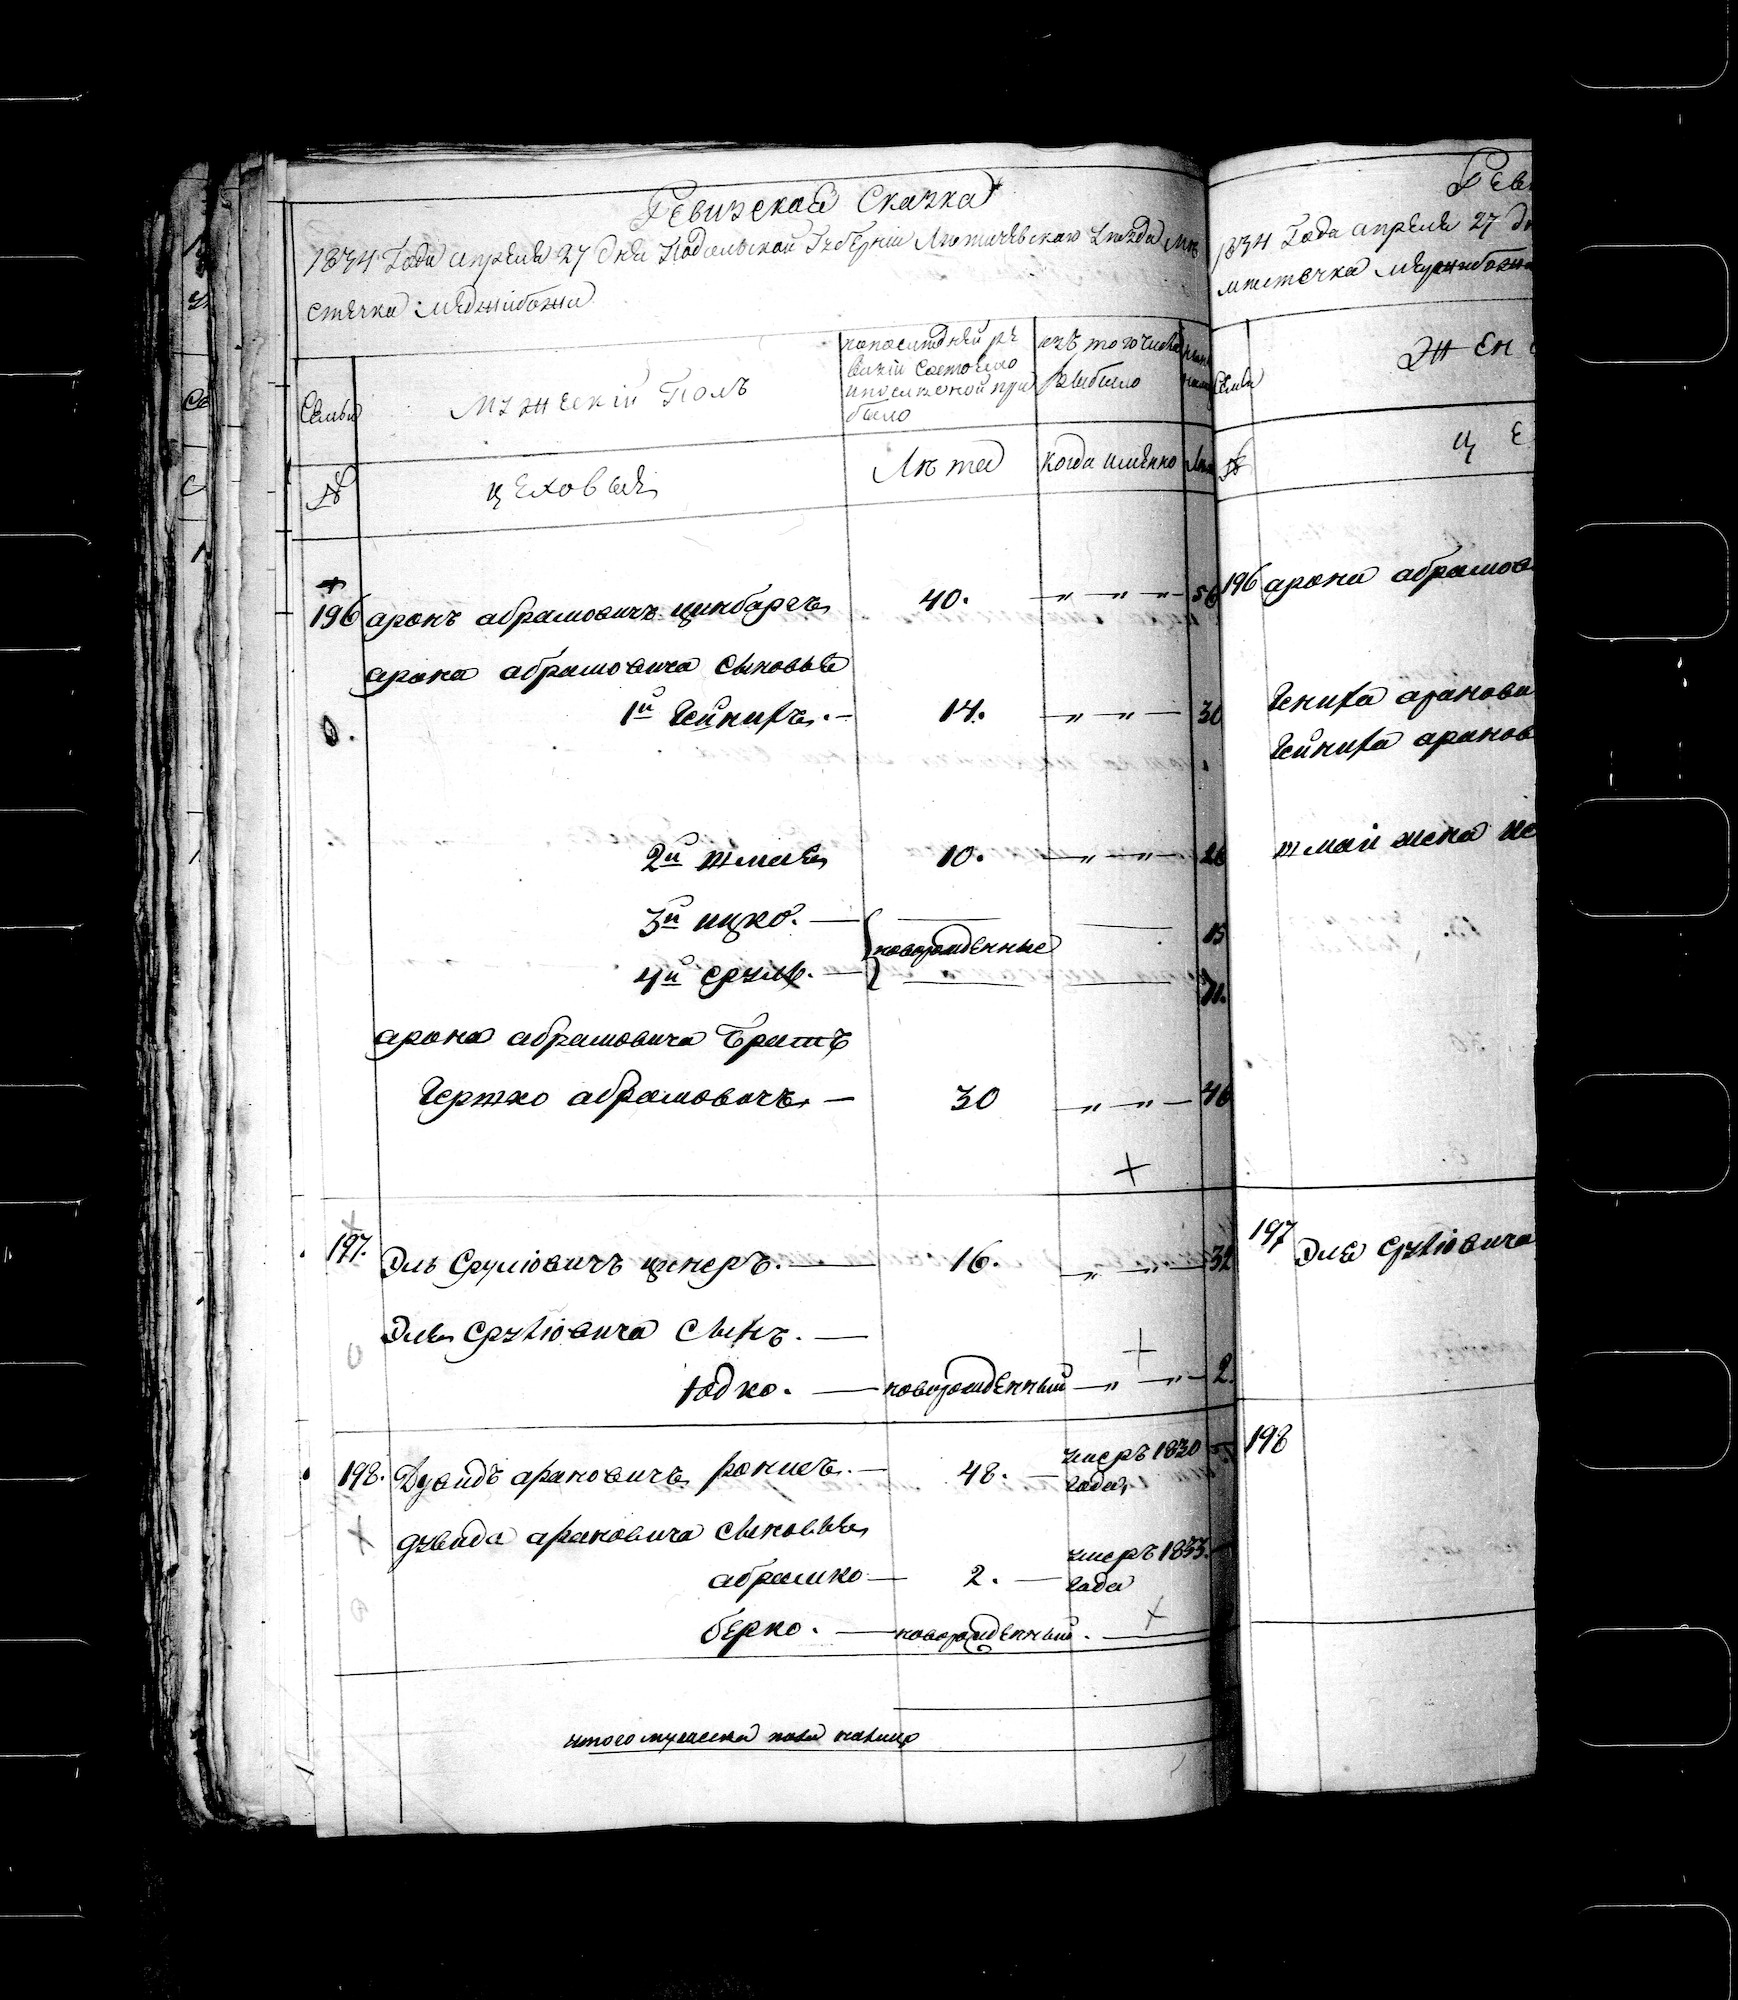 Ревизская Сказка
1834 Года апреля 27 дня Подольской Губерніи Летичевскаго Уѣзда Мѣ
стечка Меджибожа
Семьи
Мужескій Полъ
по последней ре
визіи состояло
и после оной при
было
изъ того числа
выбыло
№
цеховые
Лѣта
когда именно
196 аронъ абрамовичъ цимбаръ 40. 56
арона абрамовича сыновья
1й Гейнихъ. 14. 30
2й шмая 10. 26
3й ицко. 15
новорожденные
4й сруль. 11.
арона абрамовича братъ
Гершко абрамовичъ 30 46
197. Эль Сруліовичъ 16. 32
Эля Сруліовича сынъ.
Юдко. новорожденный 2.
198. Дувидъ ароновичъ 48. умеръ 1830
года
дувида ароновича сыновья
абрамко 2. умеръ 1833.
года
берко. новорожденный.
итого мужеска пола налицо
Рев
1834 Года апреля 27 дн
местечка Меджибожа
Семьи
Жен
№
це
196 арона абрамов
Гейниха аронов
шмаи жена
197 Эля Сруліовича
198